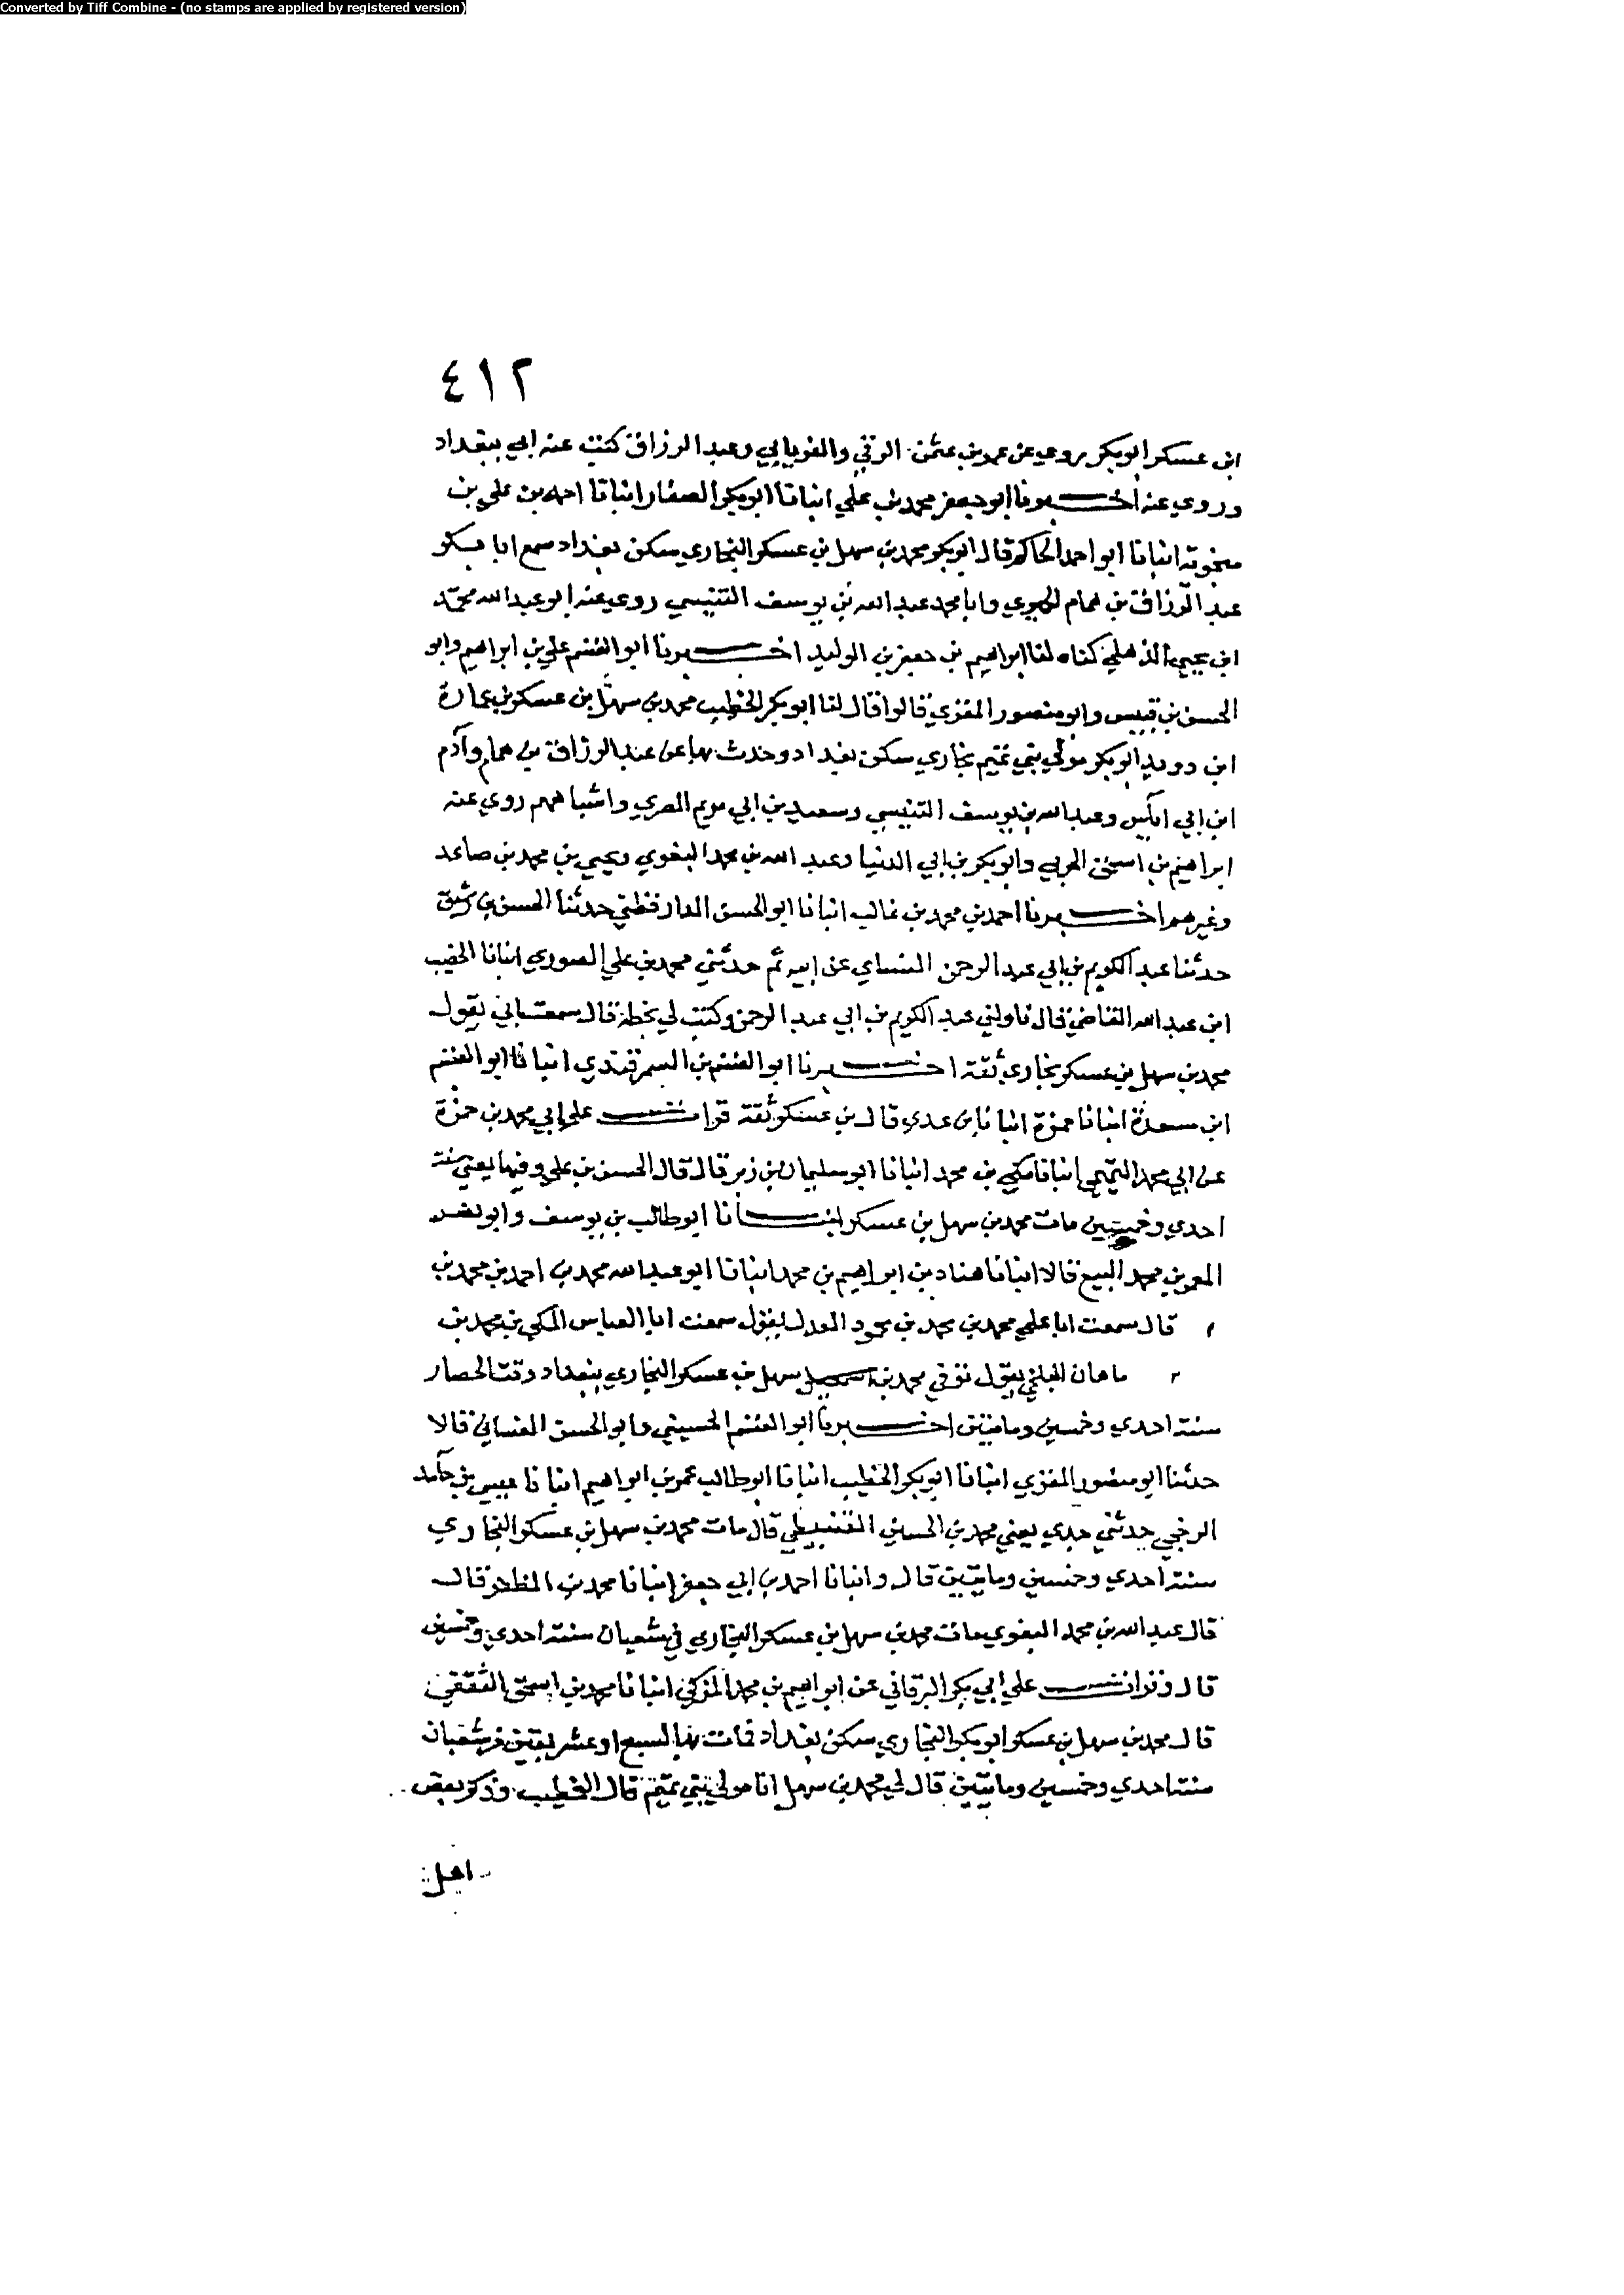 Converted by Tiff Combine - (no stamps are applied by registered version)
٤١٢
ابن عسكر ابو بكر روي عن عمرو بن عثمن الرقي والفريابي وعبد الرزاق كتبت عنه ابي ببغداد
وروي عنه اخبرنا ابو جعفر محمد بن علي انبانا ابو بكر الصفار انبانا احمد بن علي بن
منجوية انبانا ابو احمد الحاكم قال ابو بكر محمد بن سهل بن عسكر البخاري سكن بغداد سمع ابا بكر
عبد الرزاق بن همام الحميري وابا محمد عبد الله بن يوسف التنيسي روي عنه ابو عبد الله محمد
ابن يحيي الذهلي كناه لنا ابراهيم بن جعفر بن الوليد اخبرنا ابو القسم علي بن ابراهيم وابو
الحسن بن قبيس وابو منصور المقري قالوا قال لنا ابو بكر الخطيب محمد بن سهل بن عسكر بن عمارة
ابن دويد ابو بكر مولي بني تميم بخاري سكن بغداد وحدث بها عن عبد الرزاق بن همام وآدم
ابن ابي اياس وعبد الله بن يوسف التنيسي وسعيد بن ابي مريم المصري واشباههم روي عنه
ابراهيم بن اسحق الحربي وابو بكر بن ابي الدنيا وعبد الله بن محمد البغوي ويحيي بن محمد بن صاعد
وغيرهم اخبرنا احمد بن محمد بن غالب انبانا ابو الحسن الدارقطني حدثنا الحسن بن رشيق
حدثنا عبد الكريم بن ابي عبد الرحمن النساي عن ابيه ثم حدثني محمد بن علي الصوري انبانا الخصيب
ابن عبد الله القاضي قال ناولني عبد الكريم بن ابي عبد الرحمن وكتب لي بخطه قال سمعت ابي يقول
محمد بن سهل بن عسكر بخاري ثقة اخبرنا ابو القسم بن السمرقندي انبانا ابو القسم
ابن مسعدة انبانا حمزة انبانا بن عدي قال بن عسكر ثقة قرات علي ابي محمد بن حمزة
عن ابي محمد التميمي انبانا مكي بن محمد انبانا ابو سليمان بن زبر قال قال الحسن بن علي وفيها يعني سنة
احدي وخمسين مات محمد بن سهل بن عسكر انبانا ابو طالب بن يوسف وابو نصر
المعمر بن محمد البيع قالا انبانا هناد بن ابراهيم بن محمد انبانا ابو عبد الله محمد بن احمد بن محمد بن
قال سمعت ابا علي محمد بن محمد بن محمود المعدل يقول سمعت ابا العباس المكي بن محمد بن
ماهان البلخي يقول توفي محمد بن سهل بن عسكر البخاري ببغداد وقت الحصار
سنة احدي وخمسين ومايتين اخبرنا ابو القسم الحسيني وابو الحسن الغساني قالا
حدثنا ابو منصور المقري انبانا ابو بكر الخطيب انبانا ابو طالب عمر بن ابراهيم انبانا عيسي بن حامد
الرخجي حدثني جدي يعني محمد بن الحسين القنبيطي قال مات محمد بن سهل بن عسكر البخاري
سنة احدي وخمسين ومايتين قال وانبانا احمد بن ابي جعفر انبانا محمد بن المظفر قال
قال عبد الله بن محمد البغوي مات محمد بن سهل بن عسكر البخاري في شعبان سنة احدي وخمسين
قال وقرات علي ابي بكر البرقاني عن ابراهيم بن محمد المزكي انبانا محمد بن اسحق الثقفي
قال محمد بن سهل بن عسكر ابو بكر البخاري سكن بغداد فمات بها لسبع او عشر بقين من شعبان
سنة احدي وخمسين ومايتين قال لي محمد بن سهل انا مولي بني تميم قال الخطيب وذكر بعض
اهل